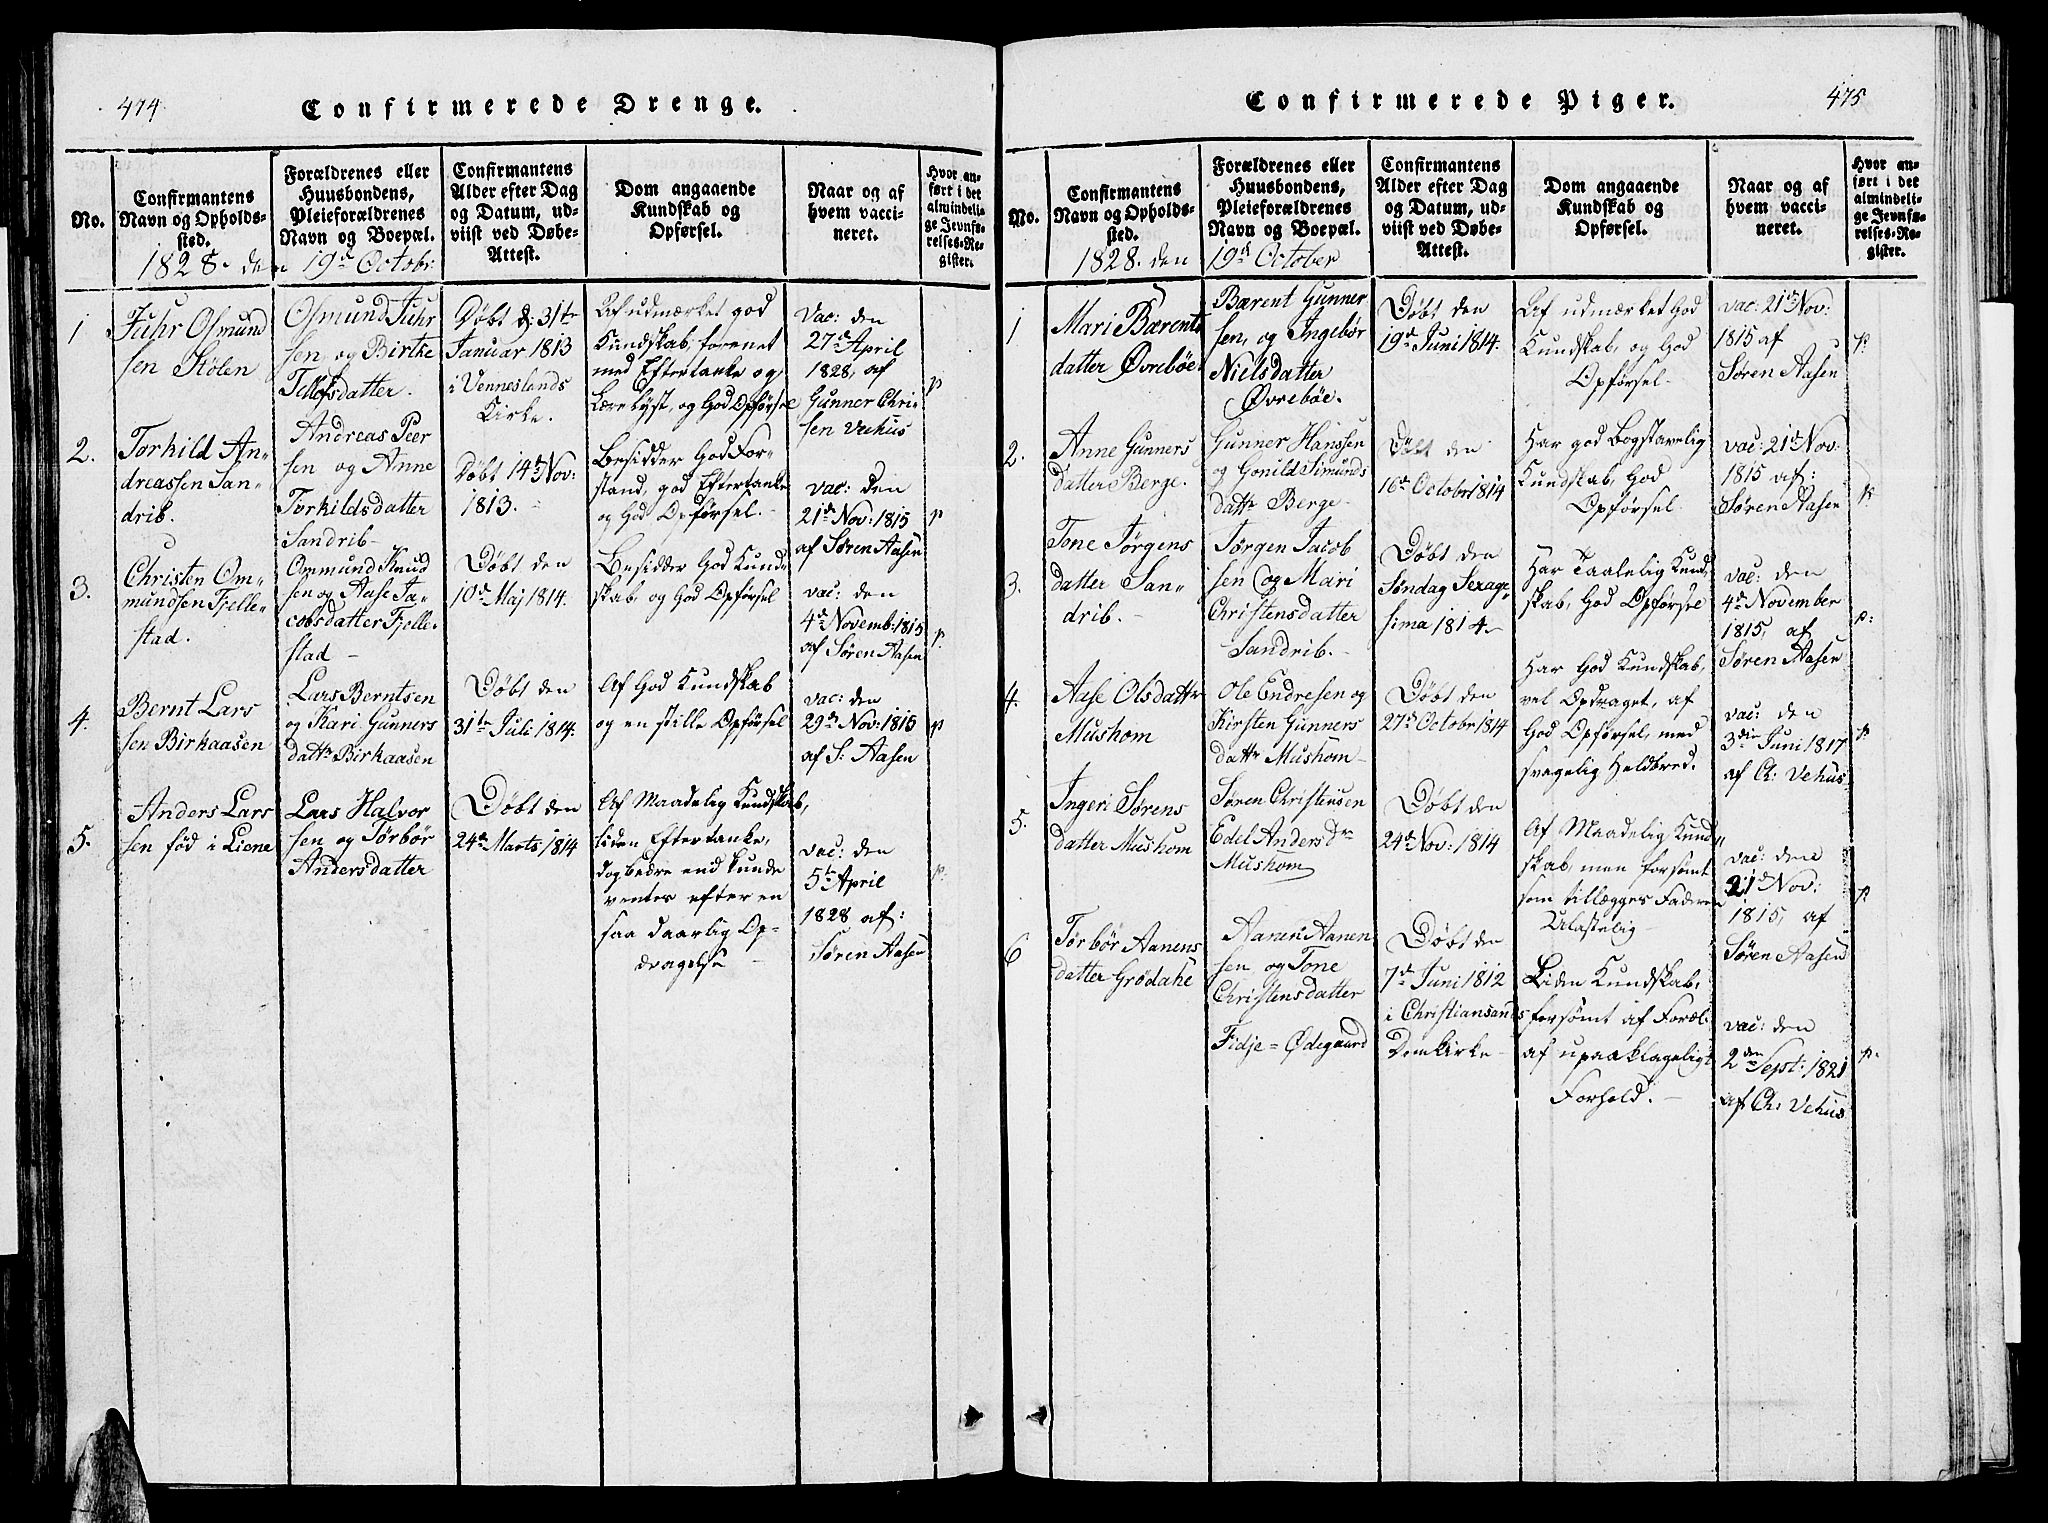 474.
Confirmerede Drenge.
No.
Confirmantens
Navn og Opholds-
sted.
Forældrenes eller
Huusbondens,
Pleieforældrenes
Navn og Boepæl.
Confirmantens
Alder efter Dag
og Datum, ud-
viist ved Døbe-
Attest.
Dom angaaende
Kundskab og
Opførsel.
Naar og af
hvem vacci-
neret.
Hvor an-
ført i det
almindeli-
ge Jevnfø-
relses-Re-
gister.
1828. den 19d Octobr:
1
Juhr Osmund
sen Stølen
Osmund Juhr
sen, og Birthe
Tellefsdatter.
Døbt d: 31te
Januar 1813
i Venneslands
Kirke.
Af udmærket god
Kundskab, forenet
med Eftertanke og
Lære Lyst, og God Opførsel
Vac: den
27de April
1828, af
Gunner Chri-
sen Vehus
p
2.
Torkild An-
dreassen San-
drib.
Andreas Peer
sen og Anne
Torkildsdatter
Sandrib-
Døbt 14de Nov:
1813. -
Besidder God For-
stand, god Eftertanke
og God Opførsel. -
vac: den
21de Nov: 1815
af Søren Aasen
p
3.
Christen Om-
mundsen Fjelle-
stad.
Ommund Knud
sen og Aase Ja-
cobsdatter Fjelle-
stad -
Døbt den
10de Maj 1814.
Besidder God Kund-
skab, og God Opførsel
vac: den
4de Novemb: 1815
af Søren Aasen
p.
4.
Bernt Lars
sen Birkaasen
Lars Berntsen
og Kari Gunners
dattr Birkaasen
Døbt den
31te Juli 1814.
Af God Kundskab
og en stille Opførsel
vac: den
29de Nov: 1815
af S: Aasen
p
5.
Anders Lars
sen fød i Liene
Lars Halvor
sen og Tørbør
Andersdatter
Døbt den
24de Marts 1814
Af Maadelig Kundskab,
liden Eftertanke,
dog bedre end kunde
ventes efter en
saa daarlig Op-
dragelse -
vac: den
5te April
1828 af:
Søren Aasen
p.
475
Confirmerede Piger.
No.
Confirmantens
Navn og Opholds-
sted.
Forældrenes eller
Huusbondens,
Pleieforældrenes
Navn og Boepæl.
Confirmantens
Alder efter Dag
og Datum, ud-
viist ved Døbe-
Attest.
Dom angaaende
Kundskab og
Opførsel.
Naar og af
hvem vacci-
neret.
Hvor an-
ført i det
almindeli-
ge Jevnfø-
relses-Re-
gister.
1828. den 19d October
1
Mari Bærents
datter Øvrebøe
Bærent Gunner
sen, og Ingebør
Nielsdatter
Øvrebøe.
Døbt den
19de Juni 1814.
Af udmærket God
Kundskab, og God
Opførsel.
vac: 21de Nov:
1815 af
Søren Aasen
p.
2.
Anne Gunners
datter Berge.
Gunner Hanssen
og Gonild Simunds
dattr Berge-
Døbt den
16de Octobr 1814
Har god Bogstavelig
Kundskab, God
Opførsel
vac: 21de Nov:
1815 af:
Søren Aasen
p.
3.
Tone Jørgens
datter San-
drib. -
Jørgen Jacob
sen og Mari
Christensdatter
Sandrib. -
Døbt den
Søndag Sexage-
sima 1814-
Har Taalelig Kund-
skab, God Opførsel
vac: den
4de November
1815, af
Søren Aasen
p:
4.
Aase Olsdattr
Mushom
Ole Endresen og
Kirsten Gunners
dattr Mushom-
Døbt den
27de Octobr 1814
Har God Kundskab,
vel Opdraget, af
God Opførsel, med
svagelig Heldbred.
vac: den
3die Juni 1817
af Ch: Vehus
p.
5.
Ingeri Sørens
datter Mushom
Søren Christensen
Edel Anders Dr
Mushom
Døbt den
24de Nov: 1814
Af Maadelig Kund-
skab, men forsømt
som tillægges Faderen
Ulastelig -
vac: den
21d Nov:
1815, af
Søren Aasen
p.
6
Tørbør Aanens
datter Grødahe
Aanen Aanen
sen og Tone
Christensdatter
Fidje = Ødegaard
Døbt den
7de Juni 1812
i Christiansands
Domkirke -
Liden Kundskab,
forsømt af Foræl:
af upaaklageligt
Forhold. -
vac: den
2den Sept: 1821
af Ch: Vehus
p.